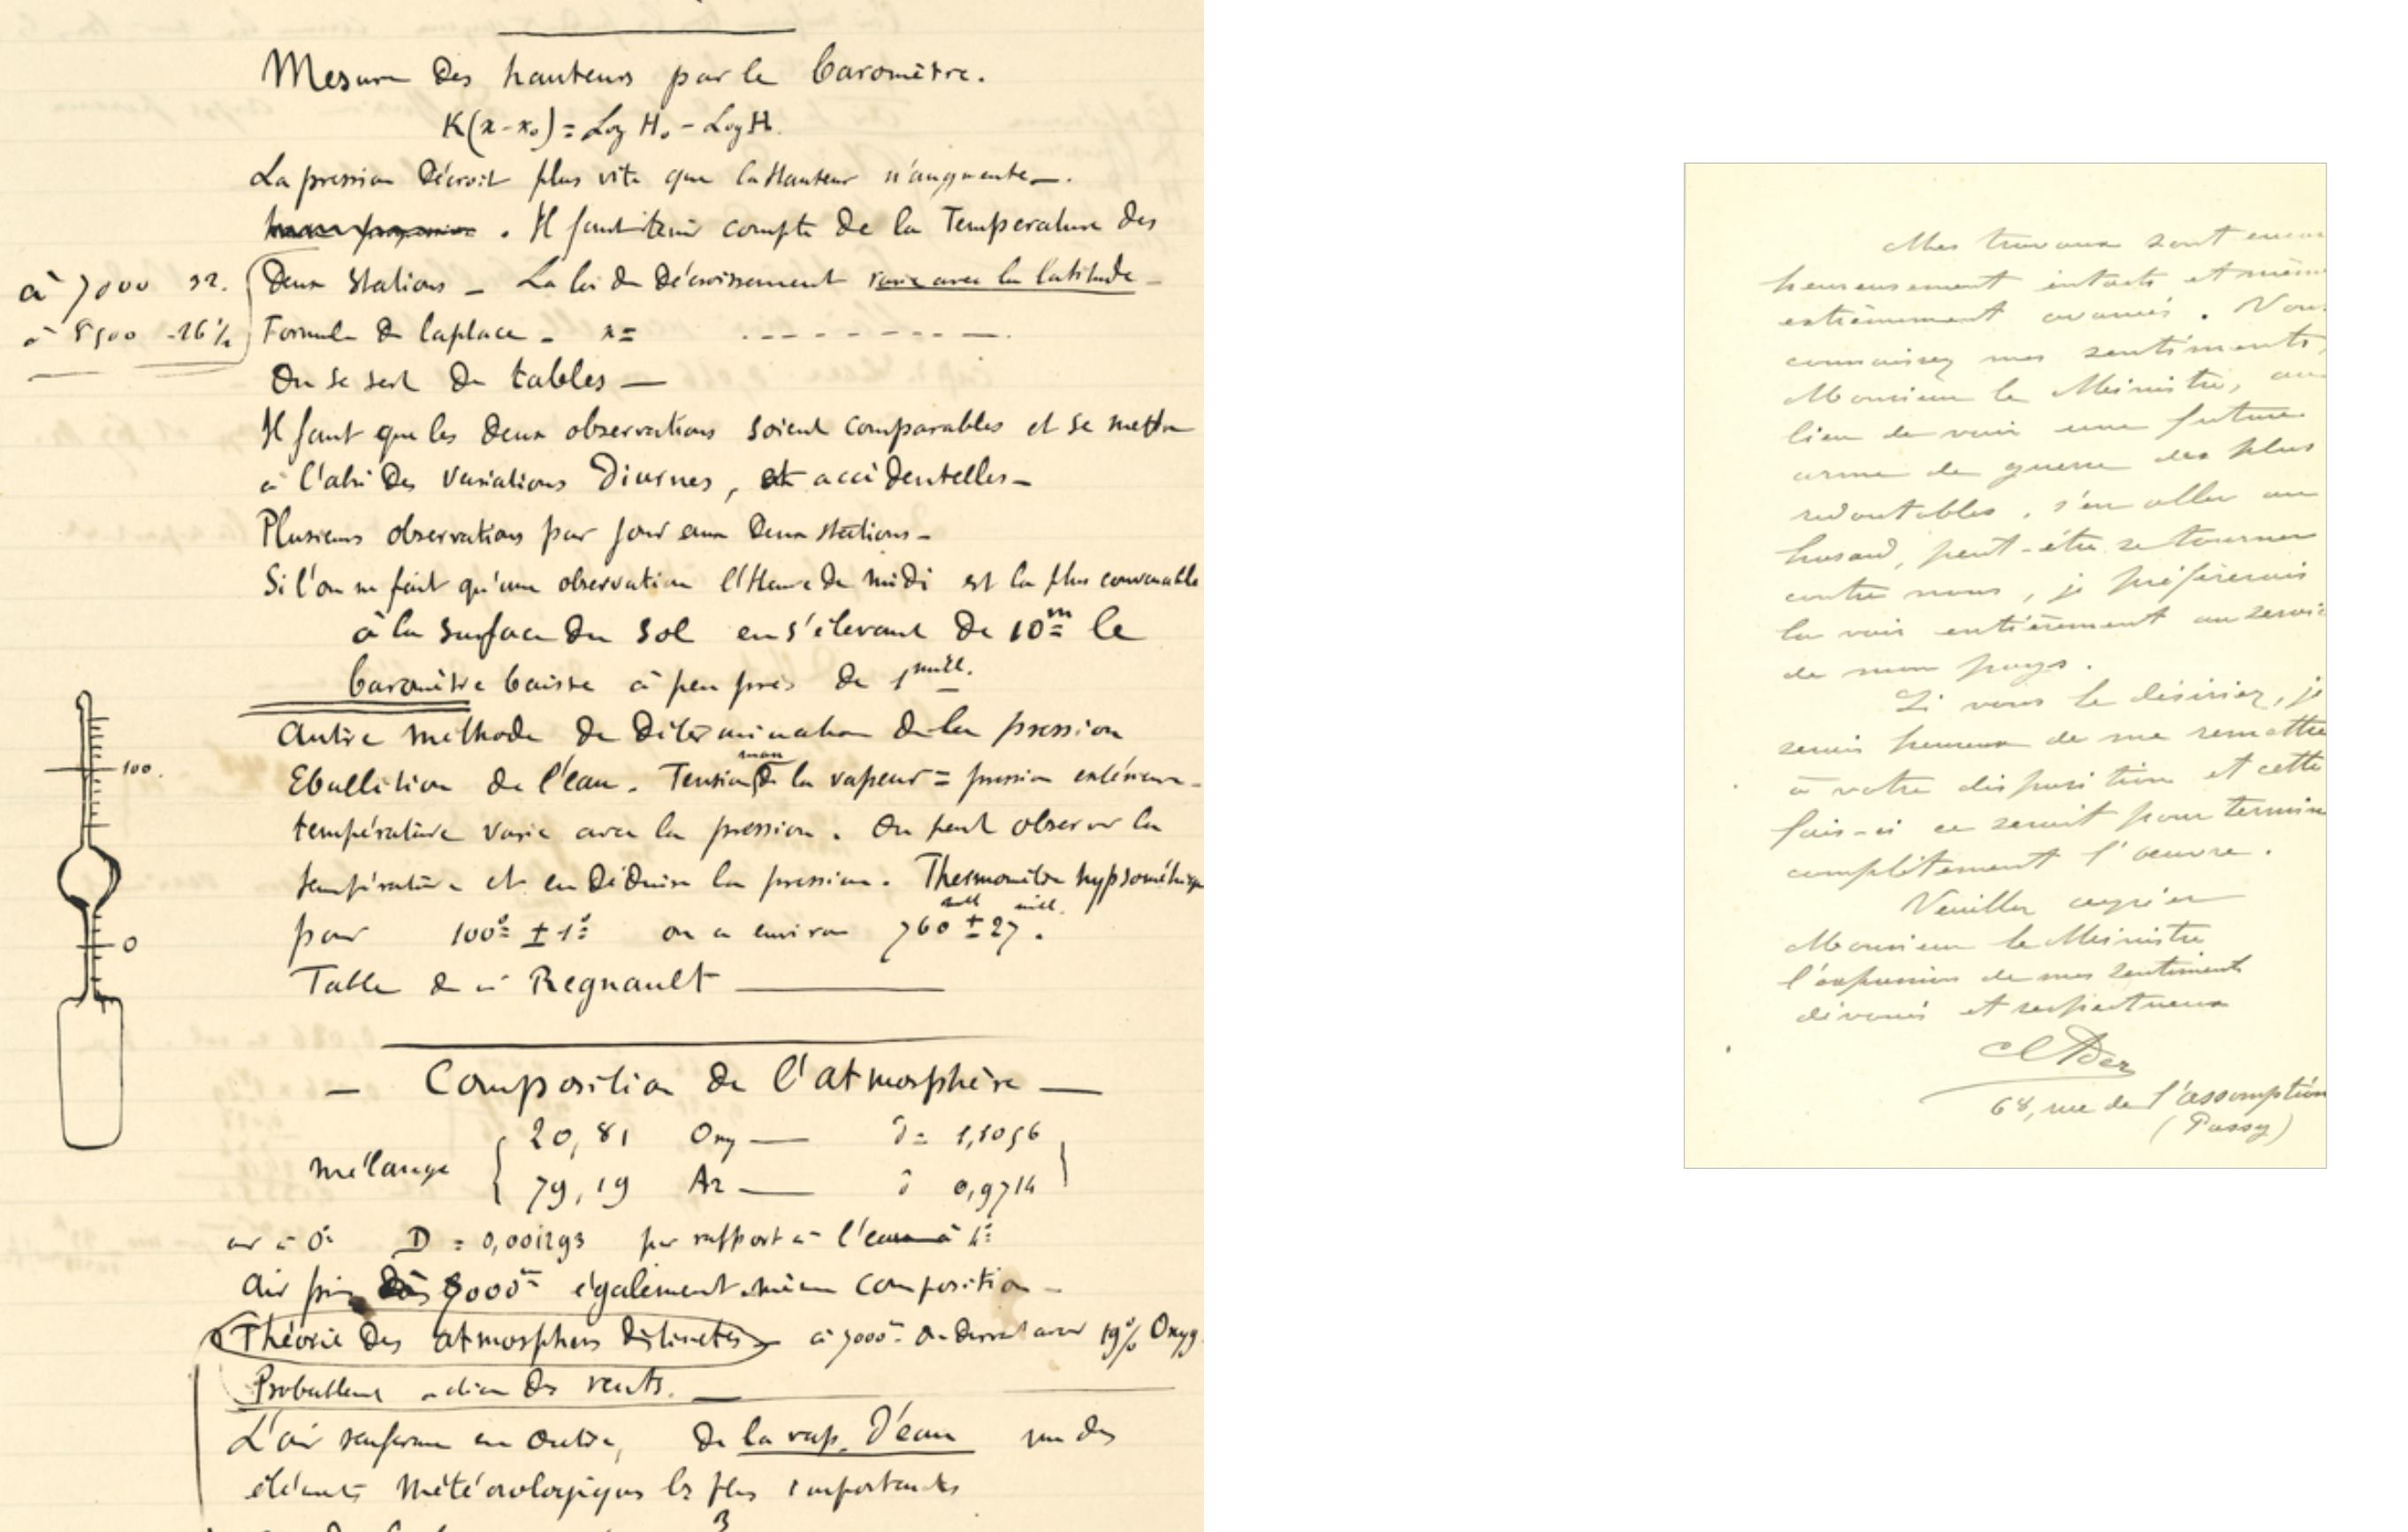 Mesure des hauteurs par le baromètre.
K(x-x₀) = Log H₀ - Log H.
La pression décroit plus vite que la Hauteur n'augmente.
. Il faut tenir compte de la Température des
à 7000 32. deux stations - La loi de décroissement varie avec la latitude -
à 8500 -26% Formule de laplace - x =
On se sert de tables -
Il faut que les deux observations soient comparables et se mettre
à l'abri des variations diurnes, et accidentelles -
Plusieurs observations par jour aux deux stations -
Si l'on ne fait qu'une observation l'Heure de midi est la plus convenable
à la surface du sol en s'élevant de 10m le
baromètre baisse à peu près de 1 mill.
Autre méthode de détermination de la pression
Ebullition de l'eau. Tension max de la vapeur = pression extérieure -
100. température varie avec la pression. On peut observer la
température et en déduire la pression. Thermomètre hypsométrique
0 pour 100° ± 1° on a environ 760 mill ± 27 mill.
Table de Regnault
- Composition de l'atmosphère -
mélange { 20,81 Oxy — δ = 1,1056
79,19 Az — δ 0,9714 }
air à 0° D = 0,001293 par rapport à l'eau à 4°
Air pris 8000m également même composition -
Théorie des atmosphères distinctes à 7000m On devrait avoir 19% Oxyg.
Probablement action des vents.
L'air renferme en outre, de la vap. d'eau un des
éléments météorologiques les plus importants
3
Mes travaux sont encor
heureusement intacts et mêm
extrêmement avancés. Vou
connaissez mes sentiments,
Monsieur le Ministre, au
lieu de voir une future
arme de guerre des plus
redoutables, s'en aller au
hasard, peut-être se tourner
contre nous, je préférerais
la voir entièrement au servic
de mon pays.
Si vous le désiriez, je
serais heureux de me remettre
à votre disposition et cette
fois-ci ce serait pour termin
complètement l'œuvre.
Veuillez agréer
Monsieur le Ministre
l'expression de mes sentiments
dévoués et respectueux
C Ader
68, rue de l'assomption
(Passy)